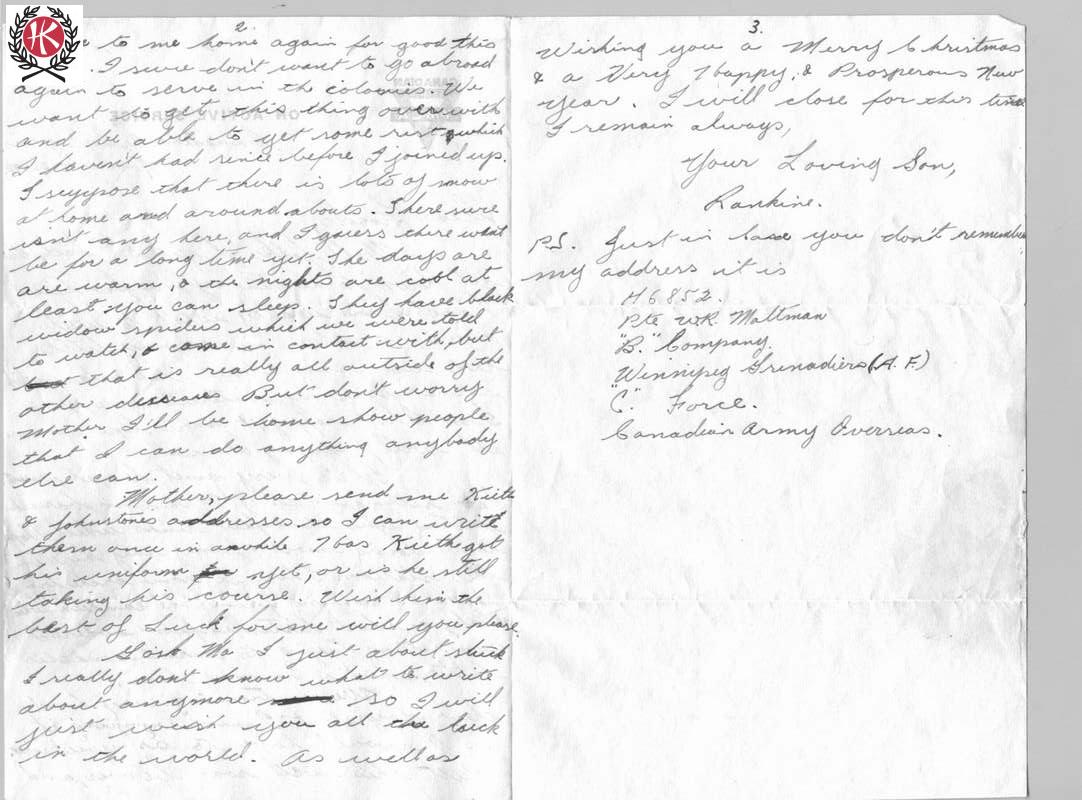 HK
2.
to me home again for good this
. I sure don't want to go abroad
again to serve in the colonies. We
want to get this thing over with
and be able to get some rest, which
I haven't had since before I joined up.
I suppose that there is lots of snow
at home and around abouts. There sure
isn't any here, and I guess there wont
be for a long time yet. The days are
are warm, & the nights are cool at
least you can sleep. They have black
widow spiders which we were told
to watch, & come in contact with, but
that is really all outside of the
other diseases But don't worry
Mother I'll be home show people
that I can do anything anybody
else can.
Mother, please send me Kieth
& Johnstones addresses so I can write
them once in awhile. Has Kieth got
his uniform yet, or is he still
taking his course. Wish him the
best of Luck for me will you please.
Gosh Ma I just about stuck
I really don't know what to write
about anymore so I will
just wish you all the luck
in the world. As well as
3.
Wishing you a Merry Christmas
& a Very Happy, & Prosperous New
Year. I will close for this time
I remain always,
Your Loving Son,
Rankine.
P.S. Just in case you don't remember
my address it is
H6852.
Pte W.R. Maltman
"B." Company.
Winnipeg Grenadiers (A.F.)
"C." Force.
Canadian Army Overseas.